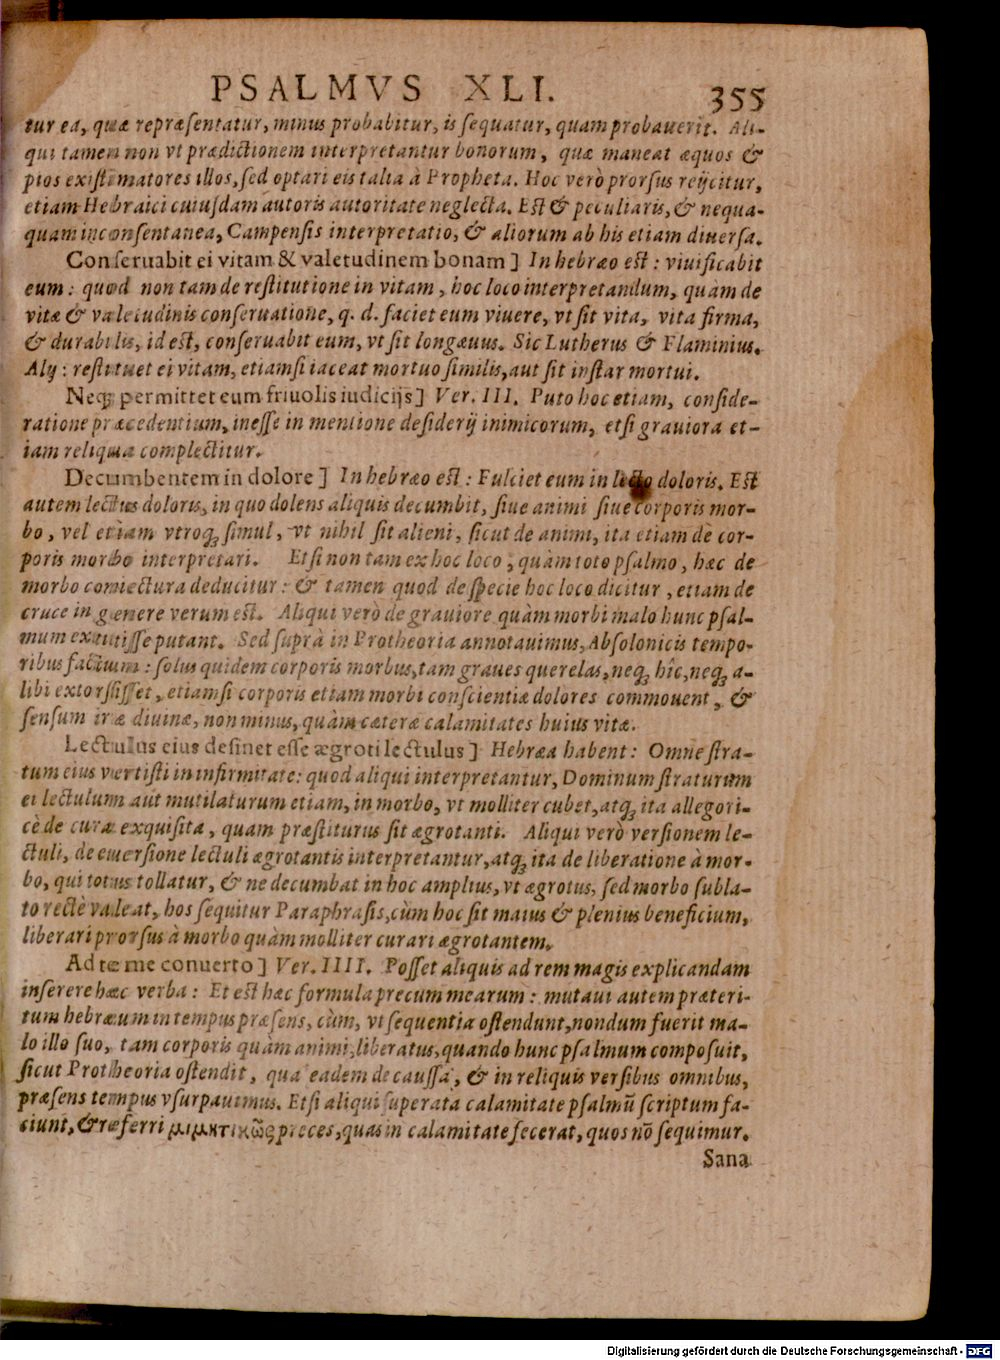 PSALMVS XLI. 355
tur ea, quæ repræsentatur, minus probabitur, is sequatur, quam probauerit. Ali-
qui tamen non vt prædictionem interpretantur bonorum, quæ maneat æquos &
pios existimatores illos, sed optari eis talia à Propheta. Hoc verò prorsus reijcitur,
etiam Hebraici cuiusdam autoris autoritate neglecta. Est & peculiaris, & nequa-
quam inconsentanea, Campensis interpretatio, & aliorum ab his etiam diuersa.
Conseruabit ei vitam & valetudinem bonam] In hebræo est: viuificabit
eum: quod non tam de restitutione in vitam, hoc loco interpretandum, quàm de
vitæ & valetudinis conseruatione, q. d. faciet eum viuere, vt sit vita, vita firma,
& durabilis, id est, conseruabit eum, vt sit longæuus. Sic Lutherus & Flaminius.
Alij: restituet ei vitam, etiamsi iaceat mortuo similis, aut sit instar mortui.
Neqꝫ permittet eum friuolis iudicijs] Ver. III. Puto hoc etiam, conside-
ratione præcedentium, inesse in mentione desiderij inimicorum, etsi grauiora et-
iam reliqua complectitur.
Decumbentem in dolore] In hebræo est: Fulciet eum in lecto doloris. Est
autem lectus doloris, in quo dolens aliquis decumbit, siue animi siue corporis mor-
bo, vel etiam vtroqꝫ simul, vt nihil sit alieni, sicut de animi, ita etiam de cor-
poris morbo interpretari. Etsi non tam ex hoc loco, quàm toto psalmo, hæc de
morbo coniectura deducitur: & tamen quod de specie hoc loco dicitur, etiam de
cruce in genere verum est. Aliqui verò de grauiore quàm morbi malo hunc psal-
mum extitisse putant. Sed suprà in Protheoria annotauimus, Absolonicis tempo-
ribus factum: solus quidem corporis morbus, tam graues querelas, neqꝫ hîc, neqꝫ a-
libi extorsisset, etiamsi corporis etiam morbi conscientiæ dolores commouent, &
sensum iræ diuinæ, non minus, quàm cæteræ calamitates huius vitæ.
Lectulus eius desinet esse ægroti lectulus] Hebræa habent: Omne stra-
tum eius vertisti in infirmitate: quod aliqui interpretantur, Dominum straturum
ei lectulum aut mutilaturum etiam, in morbo, vt molliter cubet, atqꝫ ita allegori-
cè de cura exquisita, quam præstiturus sit ægrotanti. Aliqui verò versionem le-
ctuli, de euersione lectuli ægrotantis interpretantur, atqꝫ ita de liberatione à mor-
bo, qui totus tollatur, & ne decumbat in hoc amplius, vt ægrotus, sed morbo subla-
to rectè valeat, hos sequitur Paraphrasis, cùm hoc sit maius & plenius beneficium,
liberari prorsus à morbo quàm molliter curari ægrotantem.
Ad te me conuerto] Ver. IIII. Posset aliquis ad rem magis explicandam
inserere hæc verba: Et est hæc formula precum mearum: mutaui autem præteri-
tum hebræum in tempus præsens, cùm, vt sequentia ostendunt, nondum fuerit ma-
lo illo suo, tam corporis quàm animi, liberatus, quando hunc psalmum composuit,
sicut Protheoria ostendit, qua eadem de caussa, & in reliquis versibus omnibus,
præsens tempus vsurpauimus. Etsi aliqui superata calamitate psalmū scriptum fa-
ciunt, & referri μιμητικῶς preces, quas in calamitate fecerat, quos nō sequimur.
Sana
Digitalisierung gefördert durch die Deutsche Forschungsgemeinschaft - DFG